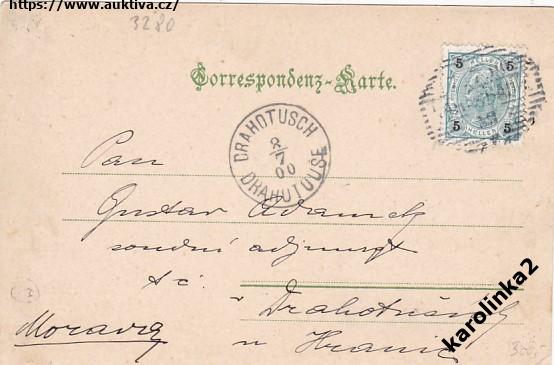 https://www.auktiva.cz/
3280
Correspondenz-Karte.
5 5
5 5
HELLER
DRAHOTUSCH
8/7
00
DRAHOTUUŠE
Pan
Gustav Adamek
soudní adjunkt
t č.
v Drahotuších
Morava
u Hranic
karolinka2
300,-